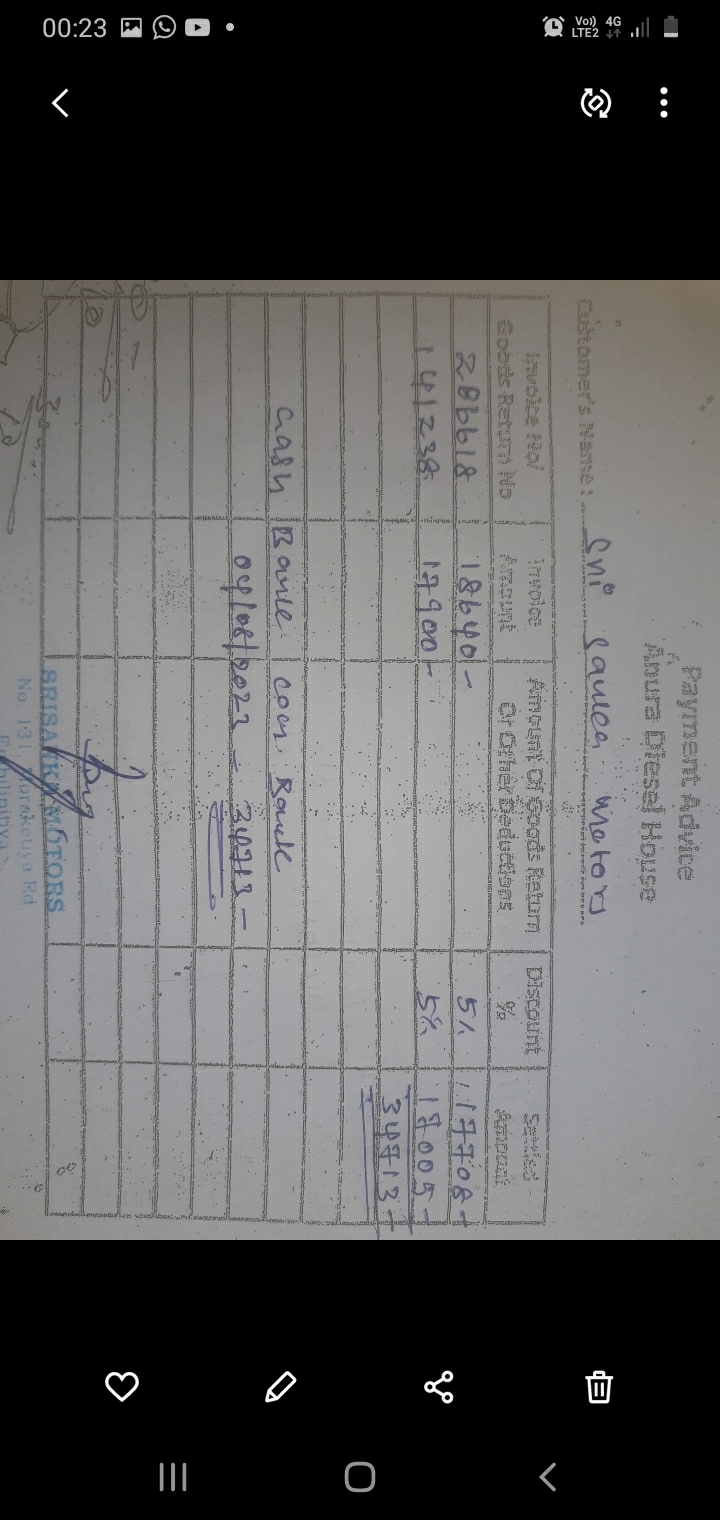 00:23
Vo)) LTE2 4G
Payment Advice
Anura Diesel House
Customer's Name: Sri Sanka Motors
Invoice No/ Goods Return No | Invoice Amount | Amount Of Goods Return Or Other Deductions | Discount % | Settled Amount
286618 18640- 5% 17708-
141238 17900- 5% 17005-
34713-
Cash Bank Com. Bank
04/08/2023 - 34713-
SRI SANKA MOTORS
No 131
Rd